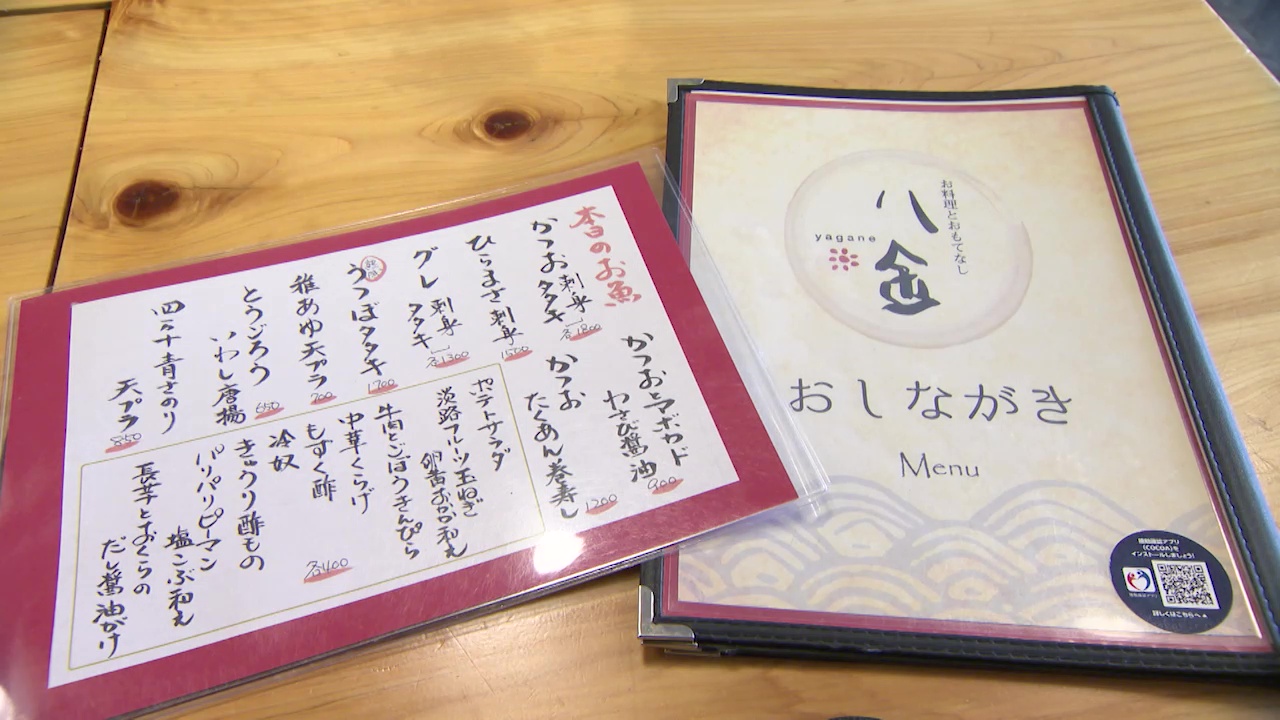 本日のお魚
かつお 刺身 タタキ 各1800
ひらまさ 刺身 1500
グレ 刺身 タタキ 各1300
うつぼタタキ 1700
稚あゆ天プラ 700
とうごろう
いわし唐揚 650
四万十青さのり
天プラ 850
かつおとアボカド
わさび醤油 900
かつお
たくあん巻寿し 1200
ポテトサラダ
淡路フルーツ玉ねぎ
卵黄おかか和え
牛肉とごぼうきんぴら
中華くらげ
もずく酢
冷奴
きゅうり酢もの
パリパリピーマン
塩こぶ和え
長芋とおくらの
だし醤油がけ
各400
お料理とおもてなし
八金
yagane
おしながき
Menu
接触確認アプリ
(COCOA)を
インストールしましょう!
詳しくはこちらへ